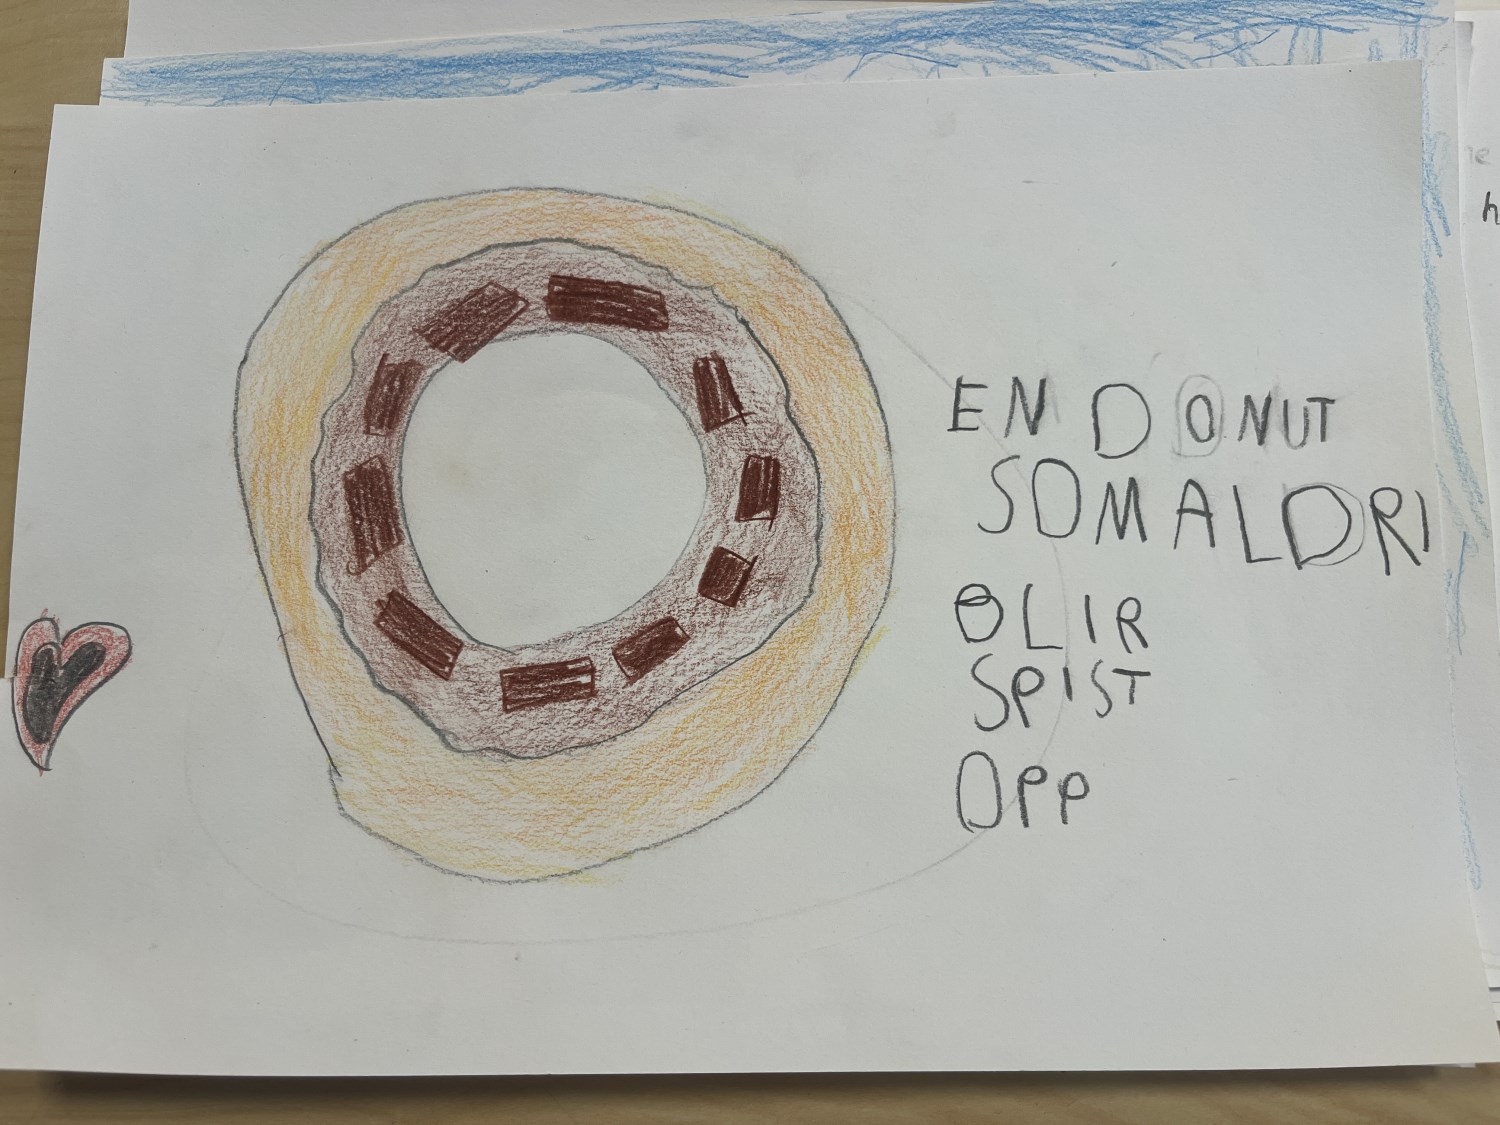 EN DONUT
SOM ALDRI
OLIR
SPIST
OPP